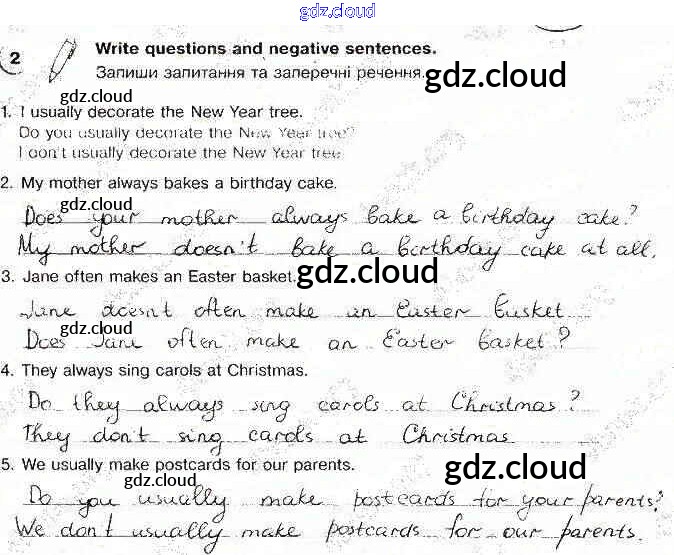 gdz.cloud
2 Write questions and negative sentences.
Запиши запитання та заперечні речення.
gdz.cloud
gdz.cloud
1. I usually decorate the New Year tree.
Do you usually decorate the New Year tree?
I don't usually decorate the New Year tree
2. My mother always bakes a birthday cake.
gdz.cloud
Does your mother always bake a birthday cake?
My mother doesn't bake a birthday cake at all.
3. Jane often makes an Easter basket.
gdz.cloud
Jane doesn't often make an Easter basket
gdz.cloud
Does Jane often make an Easter basket?
4. They always sing carols at Christmas.
Do they always sing carols at Christmas?
They don't sing carols at Christmas
5. We usually make postcards for our parents.
gdz.cloud
gdz.cloud
Do you usually make postcards for your parents?
We don't usually make postcards for our parents.
gdz.cloud